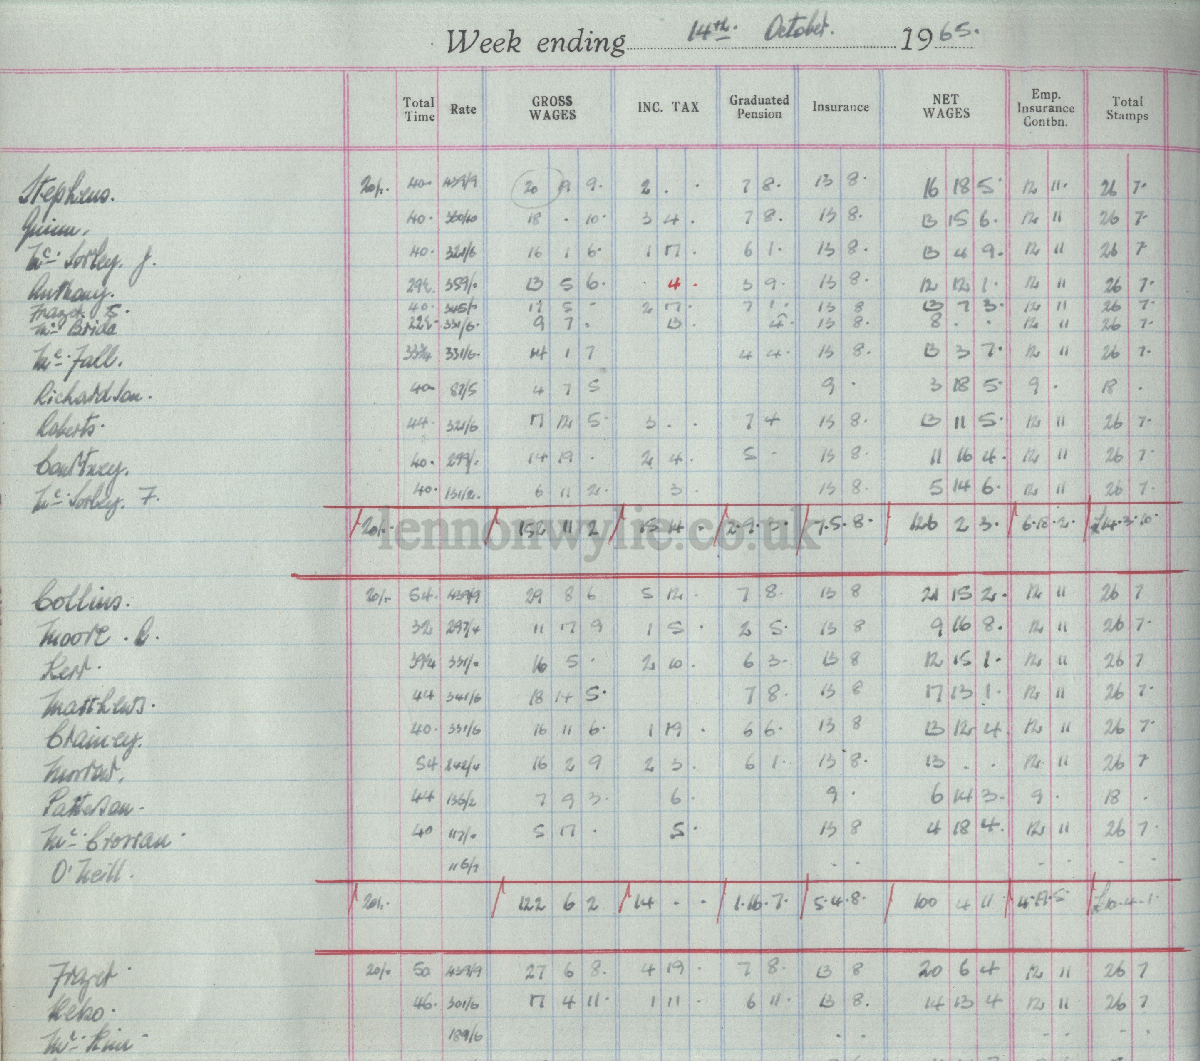 Week ending 14th. October. 1965.
Total Time Rate GROSS WAGES INC. TAX Graduated Pension Insurance NET WAGES Emp. Insurance Contbn. Total Stamps
Stephens. 20/. 40 459/9 20 19 9. 2 . . 7 8. 13 8. 16 18 5. 12 11. 26 7.
Quinn. 40. 18 . 10. 3 4. 7 8. 13 8. 13 15 6. 12 11 26 7.
Mc. Sorley. J. 40. 321/6 16 1 6. 1 17 . 6 1. 13 8. 13 4 9. 12 11 26 7
Anthony. 359/. 13 5 6. . 4 . 3 9. 13 8. 12 12 1. 12 11 26 7.
Frazer S. 40. 345/. 17 5 - 2 17. 7 1. 13 8 13 7 3. 12 11 26 7.
Mc. Bride 22½. 331/6. 9 7 . 13 . 4. 13 8. 8 . . 12 11 26 7.
Mc. Fall. 33¾ 331/6. 14 1 7 4 4. 13 8. 13 3 7. 12 11 26 7.
Richardson. 40 87/5 4 7 5 9 . 3 18 5. 9 . 18 .
Roberts. 44. 321/6 17 12 5. 3 . . 7 4 13 8. 13 11 5. 12 11 26 7.
Courtney. 40. 299/. 14 19 . 2 4. 5 - 13 8. 11 16 4. 12 11 26 7.
Mc. Sorley. F. 40. 131/2. 6 11 2. 3 . 13 8. 5 14 6. 12 11 26 7.
20/. 152 11 2 15 4 . 2.9. 7.5.8. 126 2 3. 6.18.2. £14.3.10.
lennonwylie.co.uk
Collins. 20/. 54. 459/9 29 8 6 5 12. 7 8. 13 8 21 15 2. 12 11 26 7
Moore. C. 32 297/4 11 17 9 1 5 . 2 5 13 8 9 16 8. 12 11 26 7.
Kerr. 39¼ 331/. 16 5 . 2 10. 6 3. 13 8 12 15 1. 12 11 26 7
Matthews. 44 341/6 18 14 5. 7 8. 13 8 17 13 1. 12 11 26 7.
Crainey. 40. 331/6 16 11 6. 1 19 . 6 6. 13 8 13 12 4. 12 11 26 7.
Morrow. 54 242/4 16 2 9 2 3. 6 1. 13 8. 13 . . 12 11 26 7
Patterson. 44 136/2 7 9 3. 6. 9 . 6 14 3. 9 . 18 .
Mc. Crorran. 40 117/. 5 17 . 5. 13 8 4 18 4. 12 11 26 7.
O'Neill. 116/7 . . - - - -
20/. 122 6 2 14 . . 1.16.7. 5.4.8. 100 4 11 4.19.5. £10.4.1.
Frazer. 20/. 50 459/9 27 6 8. 4 19 . 7 8. 13 8 20 6 4 12 11 26 7
46. 301/6 17 4 11. 1 11 . 6 11. 13 8. 14 13 4 12 11 26 7
189/6 . . - - . .